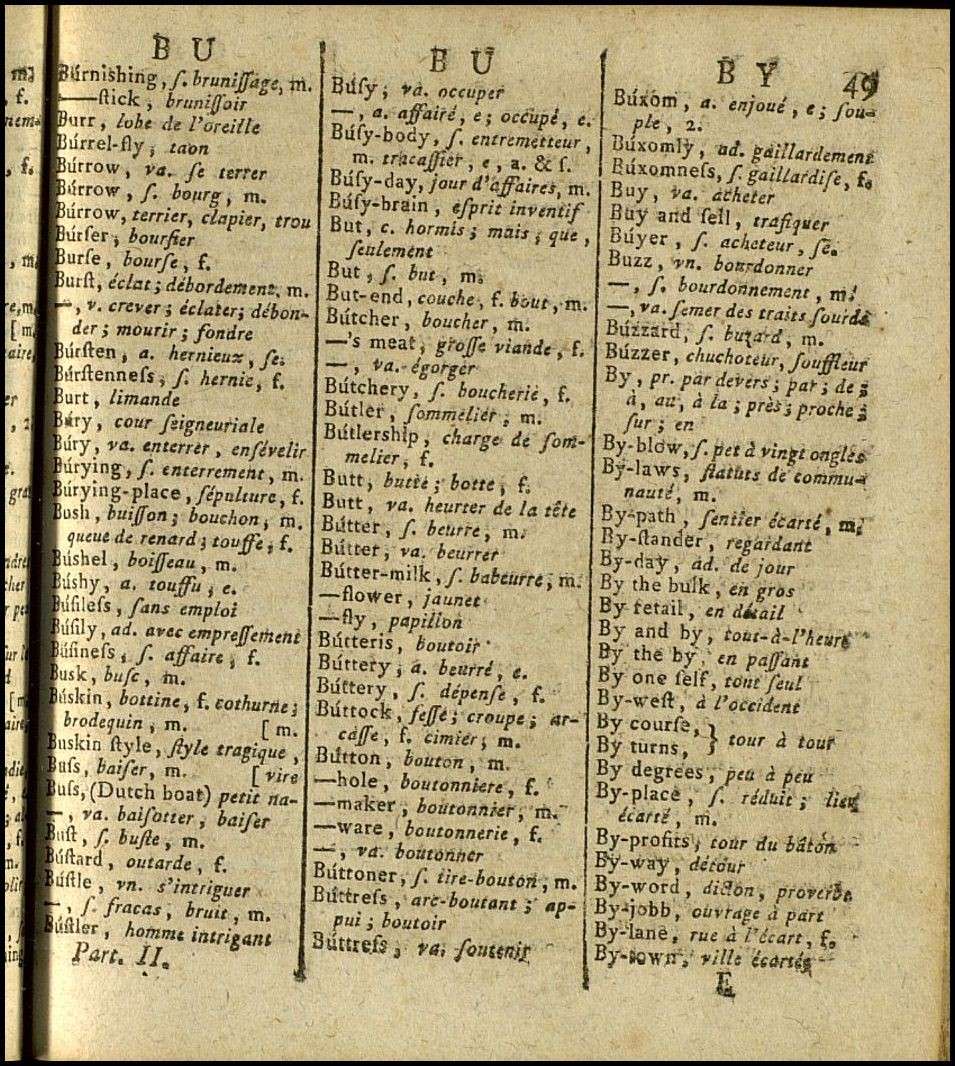 B U
Búrnishing, ſ. bruniſſage, m.
——ſtick, bruniſſoir
Burr, lobe de l'oreille
Búrrel-fly, taon
Búrrow, va. ſe terrer
Búrrow, ſ. bourg, m.
Búrrow, terrier, clapier, trou
Búrſer, bourſier
Burſe, bourſe, f.
Burſt, éclat; débordement, m.
—, v. crever; éclater; débon-
der; mourir; fondre
Búrſten, a. hernieux, ſe.
Búrſtenneſs, ſ. hernie, f.
Burt, limande
Búry, cour ſeigneuriale
Búry, va. enterrer, enſévelir
Búrying, ſ. enterrement, m.
Búrying-place, ſépulture, f.
Bush, buiſſon; bouchon, m.
queue de renard; touffe, f.
Búshel, boiſſeau, m.
Búshy, a. touffu, e.
Búſileſs, ſans emploi
Búſily, ad. avec empreſſement
Búſineſs, ſ. affaire, f.
Busk, buſc, m.
Búskin, bottine, f. cothurne;
brodequin, m. [m.
Buskin ſtyle, ſtyle tragique,
Buſs, baiſer, m. [vire
Buſs, (Dutch boat) petit na-
—, va. baiſotter, baiſer
Buſt, ſ. buſte, m.
Búſtard, outarde, f.
Búſtle, vn. s'intriguer
—, ſ. fracas, bruit, m.
Búſtler, homme intrigant
Part. II.
B U
Búſy, va. occuper
—, a. affairé, e; occupé, e.
Búſy-body, ſ. entremetteur,
m. tracaſſier, e, a. & ſ.
Búſy-day, jour d'affaires, m.
Búſy-brain, eſprit inventif
But, c. hormis; mais; que,
ſeulement
But, ſ. but, m.
But-end, couche, f. bout, m.
Bútcher, boucher, m.
—'s meat, groſſe viande, f.
—, va. égorger
Bútchery, ſ. boucherie, f.
Bútler, ſommelier, m.
Bútlership, charge de ſom-
melier, f.
Butt, butte; botte, f.
Butt, va. heurter de la tête
Bútter, ſ. beurre, m.
Bútter, va. beurrer
Bútter-milk, ſ. babeurre, m.
—flower, jaunet
—fly, papillon
Bútteris, boutoir
Búttery, a. beurré, e.
Búttery, ſ. dépenſe, f.
Búttock, feſſe; croupe; ar-
caſſe, f. cimier, m.
Bútton, bouton, m.
—hole, boutonniere, f.
—maker, boutonnier, m.
—ware, boutonnerie, f.
—, va. boutonner
Búttoner, ſ. tire-bouton, m.
Búttreſs, arc-boutant; ap-
pui; boutoir
Búttreſs, va. ſoutenir
B Y 49
Búxom, a. enjoué, e; ſou-
ple, 2.
Búxomly, ad. gaillardement
Búxomneſs, ſ. gaillardiſe, f.
Buy, va. acheter
Buy and ſell, trafiquer
Búyer, ſ. acheteur, ſe.
Buzz, vn. bourdonner
—, ſ. bourdonnement, m.
—, va. ſemer des traits ſourds
Búzzard, ſ. buzard, m.
Búzzer, chuchoteur, ſouffleur
By, pr. par devers; par; de;
à, au, à la; près; proche;
ſur; en
By-blow, ſ. pet à vingt ongles
By-laws, ſtatuts de commu-
nauté, m.
By-path, ſentier écarté, m.
By-ſtander, regardant
By-day, ad. de jour
By the bulk, en gros
By retail, en détail
By and by, tout-à-l'heure
By the by, en paſſant
By one ſelf, tout ſeul
By-weſt, à l'occident
By courſe, } tour à tour
By turns,
By degrees, peu à peu
By-place, ſ. réduit; lieu
écarté, m.
By-profits, tour du bâton
By-way, détour
By-word, dicton, proverbe
By-jobb, ouvrage à part
By-lane, rue à l'écart, f.
By-town, ville écartée
E